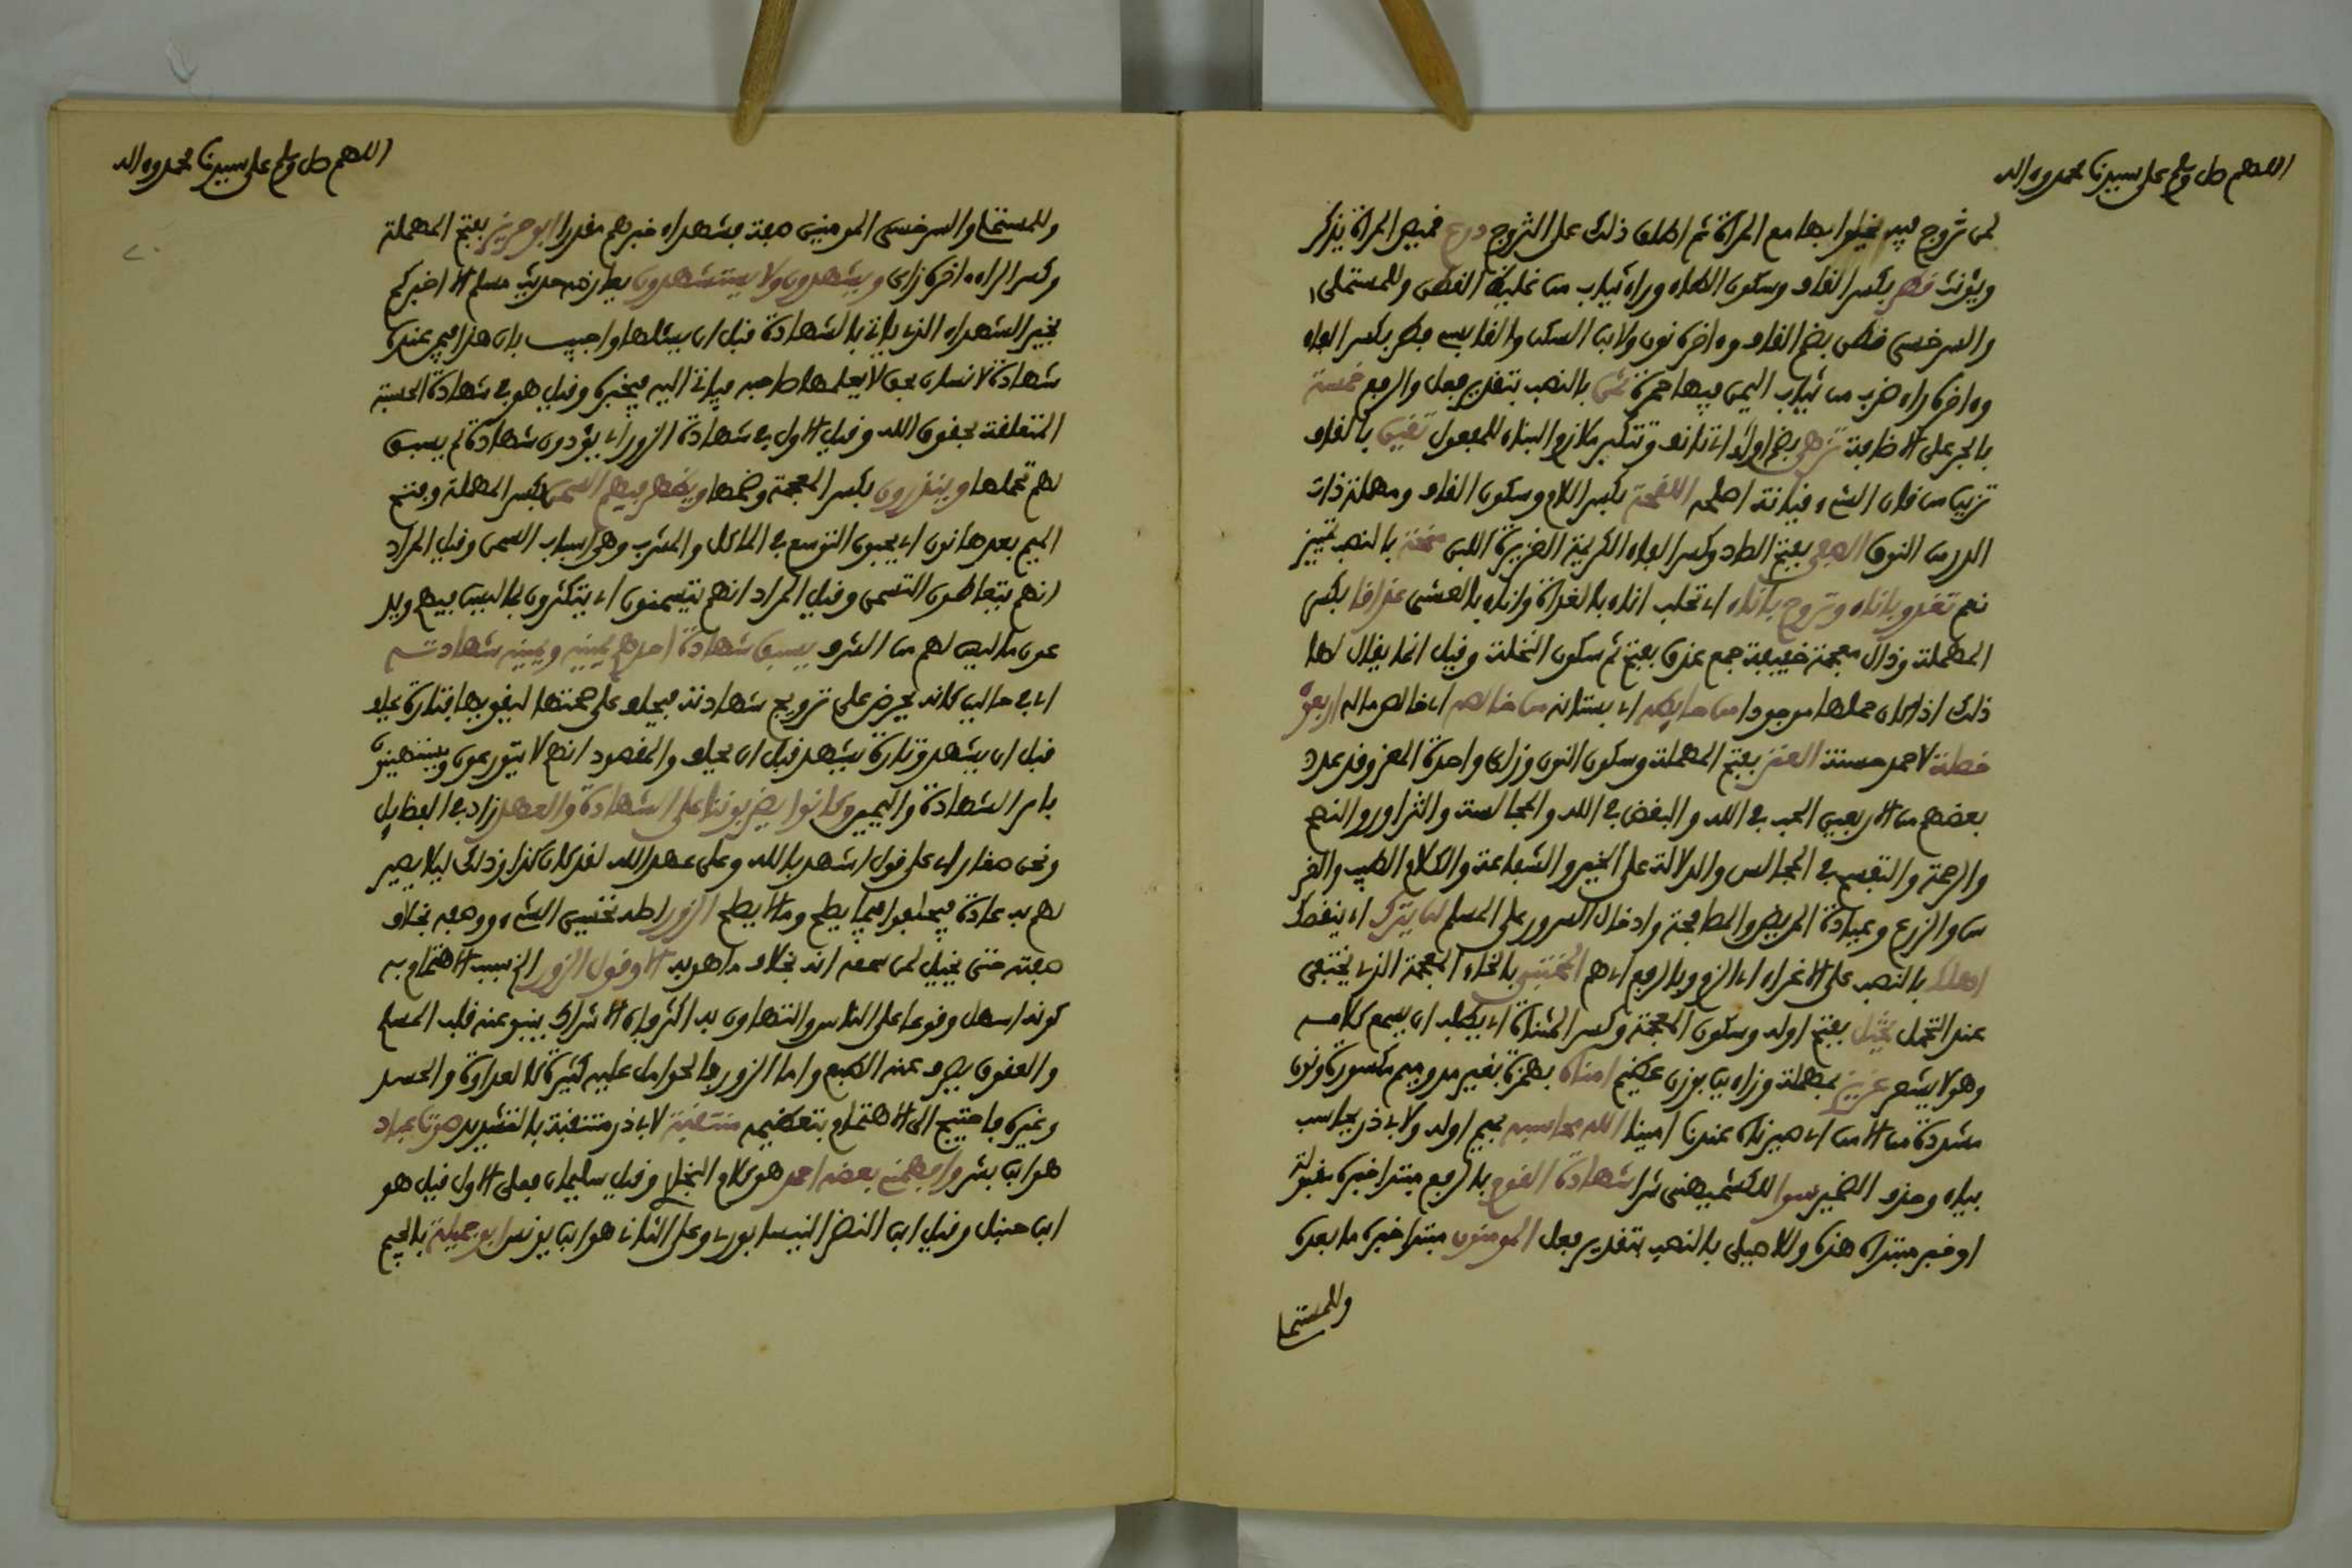 اللهم صل وسلم على سيدنا محمد وءاله
لمن تزوج فيه فيخلوا بها مع المرأة ثم اطلق ذلك على التزوج درع قميص المرأة يذكر
ويؤنث قطر بكسر القاف وسكون الطاء وراء ثياب من غليظ القطن وللمستملى
والسرخسى قطن بضم القاف وءاخره نون ولابن السكن والقابسى فطر بكسر الفاء
وءاخره راء ضرب من ثياب اليمن فيها حمرة ثمن بالنصب بتقدير فعل والرفع خمسة
بالجر على الاضافة تزهى بضم اوله اى تانف وتتكبر ملازم البناء للمفعول تقين بالقاف
تزين من قان الشىء قيانة اصلحه اللقحة بكسر اللام وسكون القاف ومهملة ذات
الدر من النوق الصفى بفتح الصاد وكسر الفاء الكريمة الغزيرة اللبن منحة بالنصب تمييز
نعم تغدو باناء وتروح باناء اى تحلب اناء بالغداة واناء بالعشى عذاقا بكسر
المهملة وذال معجمة خفيفة جمع عذق بفتح ثم سكون النخلة وقيل انما يقال لها
ذلك اذا كان حملها موجودا من حايطه اى بستانه من خالصه اى خالص ماله اربعون
خصلة لاحمد حسنة العنز بفتح المهملة وسكون النون وزاى واحدة المعز وقد عدد
بعضهم من الاربعين الحب فى الله والبغض فى الله والمجالسة والتزاور والنصح
والرحمة والتفسح فى المجالس والدلالة على الخير والشفاعة والكلام الطيب والغر
س والزرع وعيادة المريض والمصافحة وادخال السرور على المسلم لن يترك اى ينقصك
اهلك بالنصب على الاغراء اى الزم وبالرفع اى هم المختبى بالخاء المعجمة الذى يختفى
عند التحمل يختل بفتح اوله وسكون المعجمة وكسر المثناة اى يطلب ان يسمع كلامه
وهو لا يشعر عزيز بمهملة وزاءين بوزن عظيم امناه بهمزة بغير مد وميم مكسورة ونون
مشددة من الامن اى صيرناه عندنا امينا الله محاسبه بميم اوله ولابى ذر يحاسب
بياء وحذف الضمير سوا للكشميهنى شرا شهادة القوم بالرفع مبتدا خبره مقبولة
او خبر مبتداه هذه وللاصيلى بالنصب بتقدير فعل المومنون مبتدا خبره ما بعده
وللمستملى
اللهم صل وسلم على سيدنا محمد وءاله
وللمستملى والسرخسى المومنين صفة بشهداء خبرهم مقدرا ابو حريز بفتح المهملة
وكسر الراء ءاخره زاى ويشهدون ولا يستشهدون يعارضه حديث مسلم الا اخبركم
بخير الشهداء الذى ياتى بالشهادة قبل ان يسئلها واجيب بان هذا فيمن عنده
شهادة لانسان بحق لا يعلمها صاحبه فياتى اليه فيخبره وقيل هو فى شهادة الحسبة
المتعلقة بحقوق الله وقيل الاول فى شهادة الزور اى يؤدون شهادة لم يسبق
لهم تحملها وينذرون بكسر المعجمة وضمها ويظهر فيهم السمن بكسر المهملة وفتح
الميم بعدها نون اى يحبون التوسع فى الماكل والمشرب وهى اسباب السمن وقيل المراد
انهم يتعاطون التسمن وقيل المراد انهم يتسمنون اى يتكثرون بما ليس فيهم ويد
عون ما ليس لهم من الشرف يسبق شهادة احدهم يمينه ويمينه شهادته
اى فى حالين كانه يحرص على ترويج شهادته فيحلف على صحتها ليقويها فتارة يحلف
قبل ان يشهد وتارة يشهد قبل ان يحلف والمقصود انهم لا يتورعون ويستهينون
بامر الشهادة واليمين وكانوا يضربوننا على الشهادة والعهد زاد فى الفضايل
ونحن صغار اى على قول اشهد بالله وعلى عهد الله لقد كان كذا وذلك ليلا يصير
لهم به عادة فيحلفوا فيما يصلح وما لا يصلح الزور اصله تحسين الشىء ووصفه بخلاف
صفته حتى يخيل لمن سمعه انه بخلاف ما هو به الا وقول الزور الخ سبب الاهتمام به
كونه اسهل وقوعا على الناس والتهاون به اكثر فان الاشراك ينبو عنه قلب المسلم
والعقوق يصرف عنه الطبع واما الزور فالحوامل عليه كثيرة كالعداوة والحسد
وغيره فاحتيج الى الاهتمام بتعظيمه منتقبة لابى ذر متنقبة بالتشديد صوت عباد
هو ابن بشر وافهمنى بعضه احمد هو كلام البخارى وقيل سليمان فعلى الاول قيل هو
ابن حنبل وقيل ابن النضر النيسابورى وعلى الثانى هو ابن يونس ابو جميلة بالجيم